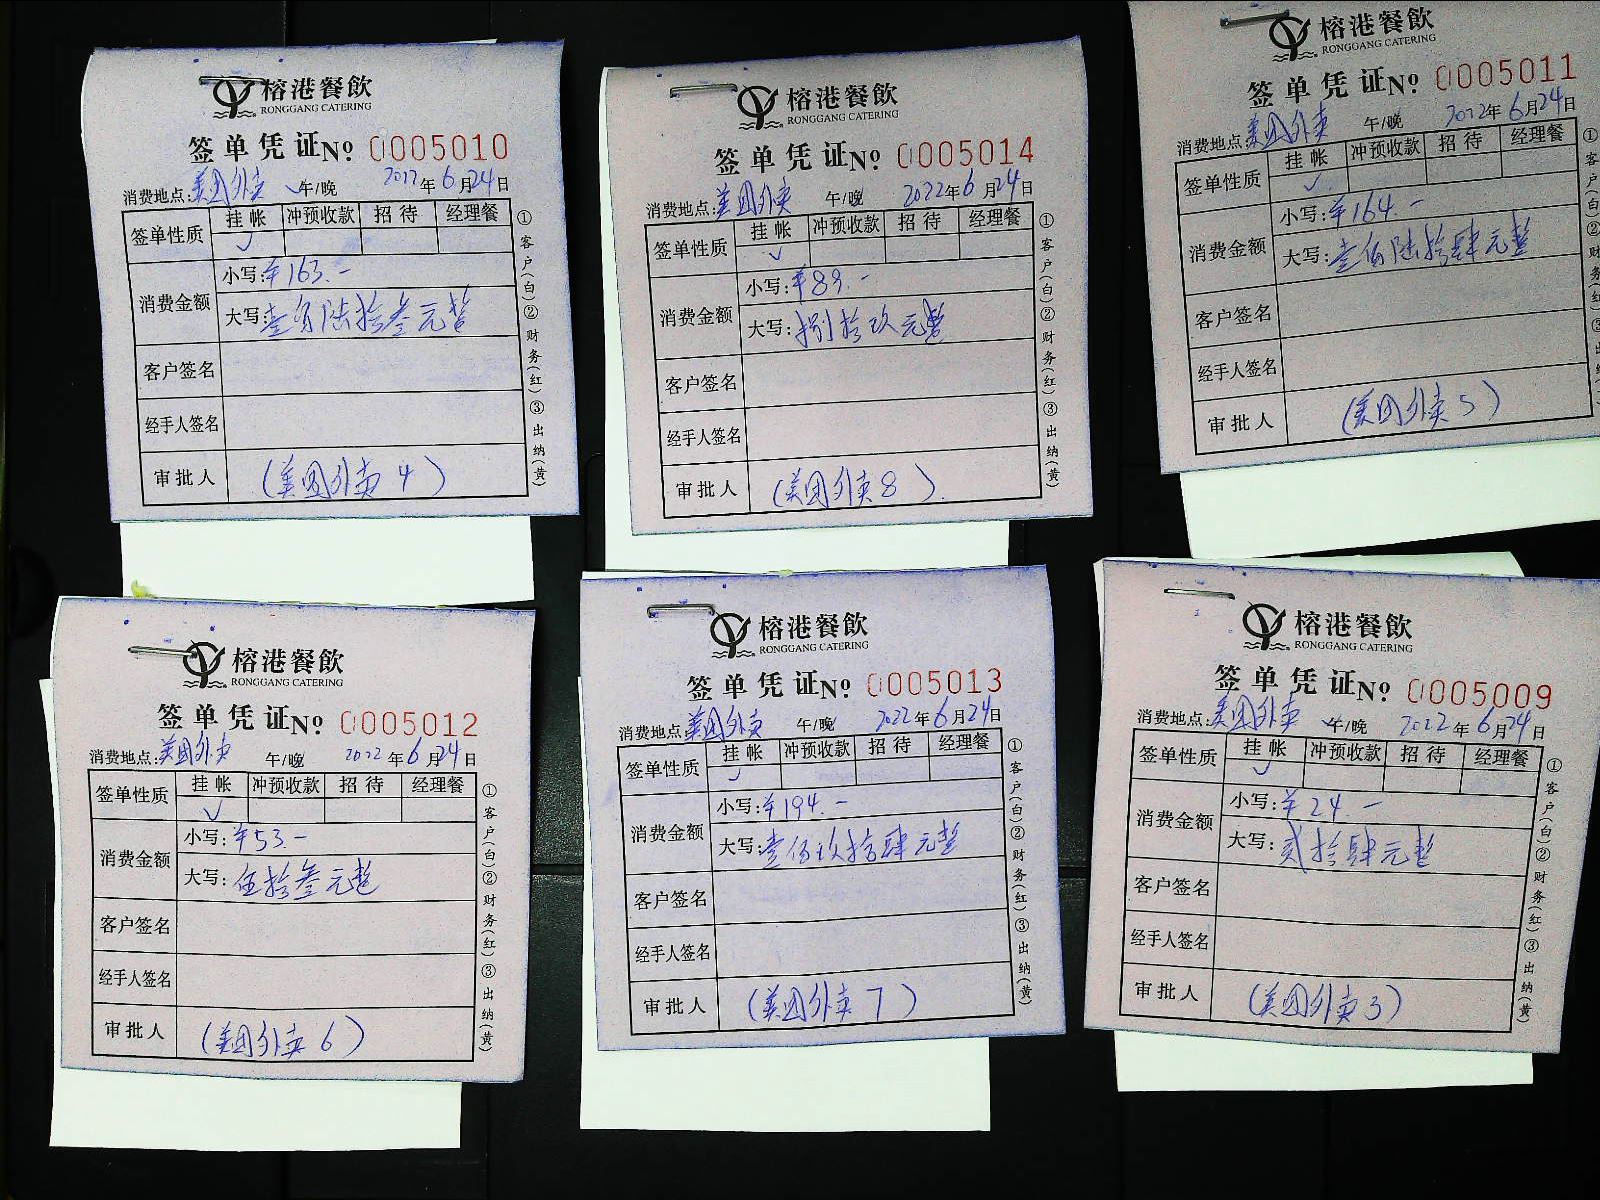 榕港餐飲
RONGGANG CATERING
签单凭证 № 0005010
消费地点:美团外卖 ✓午/晚 2022年6月24日
签单性质 挂帐 冲预收款 招待 经理餐
✓
消费金额 小写:¥163.-
大写:壹佰陆拾叁元整
客户签名
经手人签名
审批人 (美团外卖4)
①客户(白)②财务(红)③出纳(黄)
榕港餐飲
RONGGANG CATERING
签单凭证 № 0005014
消费地点:美团外卖 午/晚 2022年6月24日
签单性质 挂帐 冲预收款 招待 经理餐
✓
消费金额 小写:¥89.-
大写:捌拾玖元整
客户签名
经手人签名
审批人 (美团外卖8).
①客户(白)②财务(红)③出纳(黄)
榕港餐飲
RONGGANG CATERING
签单凭证 № 0005011
消费地点:美团外卖 午/晚 2022年6月24日
签单性质 挂帐 冲预收款 招待 经理餐
✓
消费金额 小写:¥164.-
大写:壹佰陆拾肆元整
客户签名
经手人签名
审批人 (美团外卖5)
①客户(白)②财务(红)③出
榕港餐飲
RONGGANG CATERING
签单凭证 № 0005012
消费地点:美团外卖 午/晚 2022年6月24日
签单性质 挂帐 冲预收款 招待 经理餐
✓
消费金额 小写:¥53.-
大写:伍拾叁元整
客户签名
经手人签名
审批人 (美团外卖6)
①客户(白)②财务(红)③出纳(黄)
榕港餐飲
RONGGANG CATERING
签单凭证 № 0005013
消费地点:美团外卖 午/晚 2022年6月24日
签单性质 挂帐 冲预收款 招待 经理餐
✓
消费金额 小写:¥194.-
大写:壹佰玖拾肆元整
客户签名
经手人签名
审批人 (美团外卖7)
①客户(白)②财务(红)③出纳(黄)
榕港餐飲
RONGGANG CATERING
签单凭证 № 0005009
消费地点:美团外卖 ✓午/晚 2022年6月24日
签单性质 挂帐 冲预收款 招待 经理餐
✓
消费金额 小写:¥24.-
大写:贰拾肆元整
客户签名
经手人签名
审批人 (美团外卖3)
①客户(白)②财务(红)③出纳(黄)